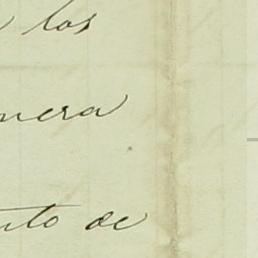 los
nera
nto de